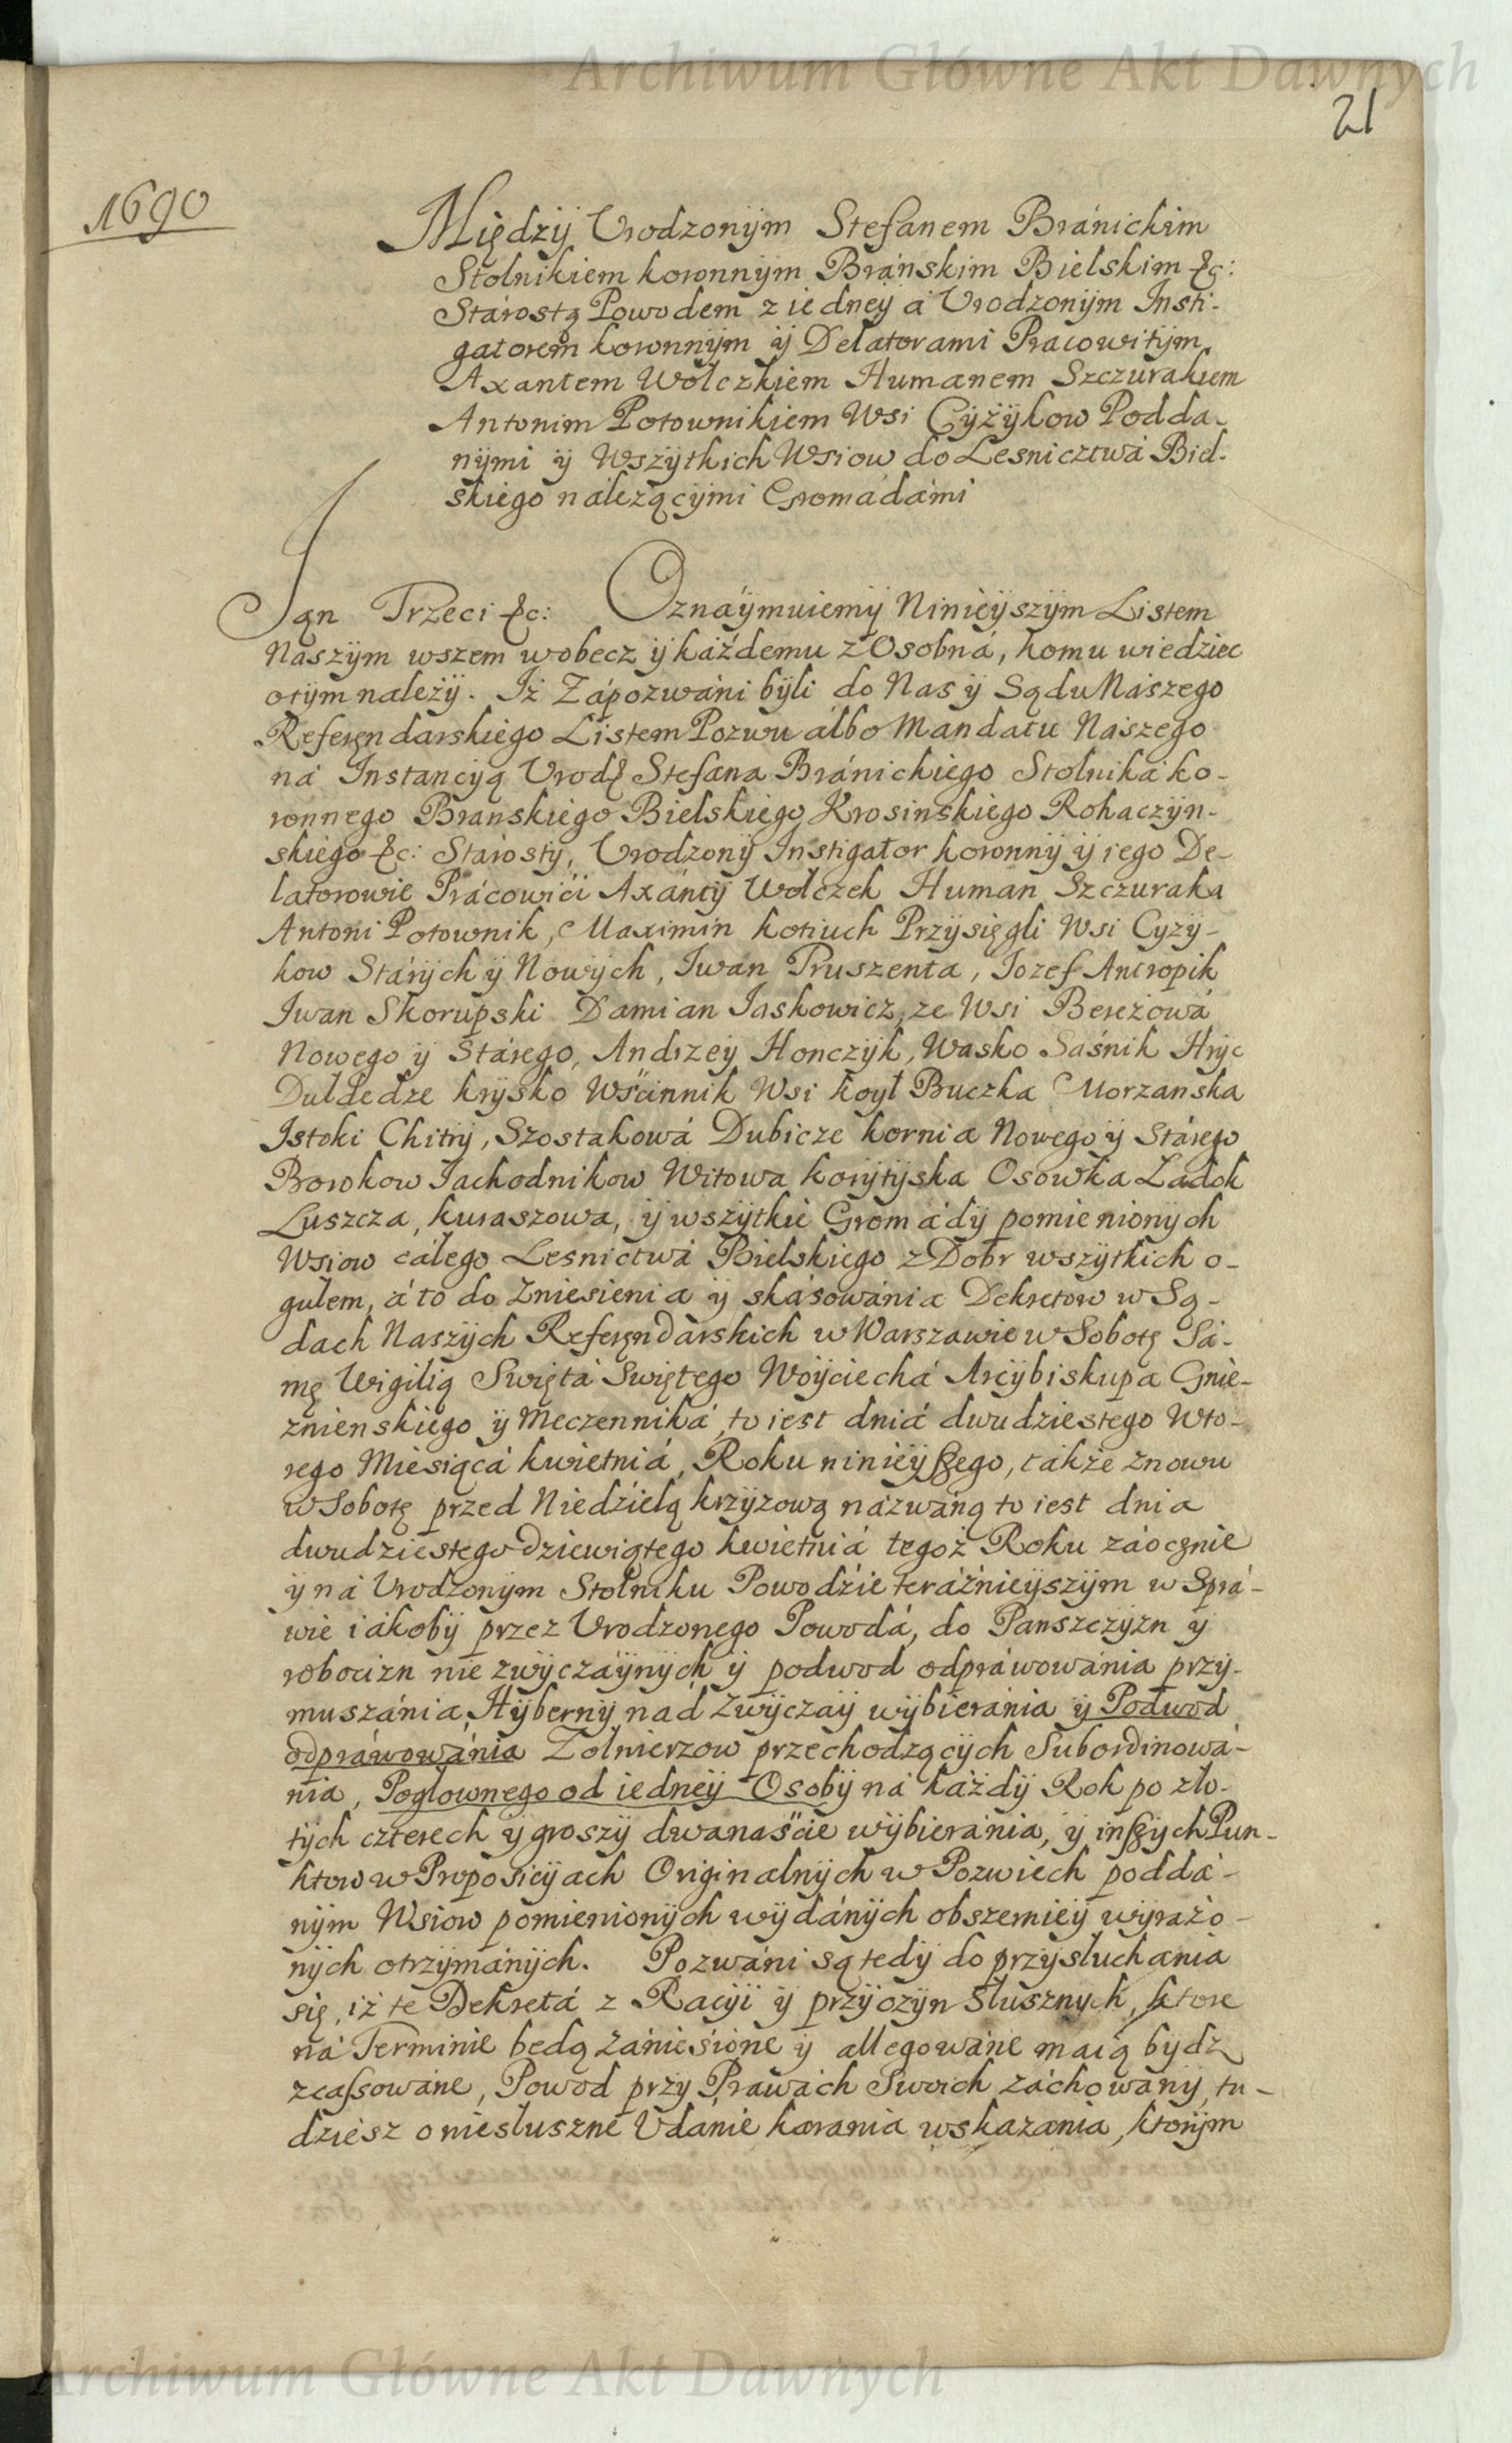 Archiwum Główne Akt Dawnych
21
1690
Między Urodzonÿm Stefanem Bránickim
Stolnikiem koronnÿm Bráńskim Bielskim &c:
Stárostą Powodem z iedneÿ á Urodzonÿm Insti-
gatorem koronnÿm ÿ Delatorami Pracowitÿm
Axantem Wołczkiem Humanem Szczurakiem
Antonim Potownikiem Wsi Cÿżÿkow Podda-
nÿmi ÿ Wszÿtkich Wsiow do Lesnicztwá Biel-
skiego náleżącÿmi Gromádámi
Jan Trzeci &c: Oznáÿmuiemÿ Ninieÿszÿm Listem
Naszÿm wszem wobecz ÿ każdemu z Osobná, komu wiedziec
otÿm należÿ. Iż Zápozwáni bÿli do Nas ÿ Sądu Naszego
Referęndarskiego Listem Pozwu álbo Mandatu Naszego
ná Instancÿą Urodz Stefana Bránickiego Stolniká ko-
ronnego Branskiego Bielskiego Krosinskiego Rohaczÿn-
skiego &c: Stárostÿ, Urodzonÿ Instigator koronnÿ ÿ iego De-
latorowie Prácowići Axántÿ Wołczek Human Szczuraka
Antoni Potownik, Maximin kotiuch Przÿsięgli Wsi Cyzÿ-
kow Stárÿch ÿ Nowÿch, Iwan Pruszenta, Iozef Antropik
Iwan Skorupski Damian Iaskowicz, ze Wsi Bereżowá
Nowego ÿ Stárego, Andrzeÿ Honczÿk, Wasko Saśnik Hrÿc
Duldedze krÿsko Wśćinnik Wsi koÿł Buczka Morzanska
Istoki Chitrÿ, Szostakowá Dubicze kornia Nowego ÿ Stárego
Borokow Iachodnikow Witowa korÿtÿska Osowka Ladok
Luszcza, kuraszowa, ÿ wszÿtkie Gromádÿ pomienionÿch
Wsiow cáłego Lesnictwá Bielskiego z Dobr wszÿtkich o-
gułem, á to do Zniesienia ÿ skásowánia Dekretow w Są-
dach Naszÿch Referęndarskich w Warszawie w Sobotę Sá-
mę Wigilią Swiętá Swiętego Woÿciechá Arcÿbiskupa Gnie-
znienskiego ÿ Meczenniká, to iest dniá dwudziestego Wto-
rego Miesiącá kwietniá, Roku ninieÿszego, także znowu
w Sobotę przed Niedzielą krzÿzową názwáną to iest dnia
dwudziestego dziewiątego kwietniá tegoż Roku záocznie
ÿ ná Urodzonÿm Stolniku Powodzie teráźnieÿszÿm w Sprá-
wie iákobÿ przez Urodzonego Powodá, do Panszczÿzn ÿ
robocizn nie zwÿczáÿnÿch ÿ podwod odpráwowánia przÿ-
muszánia, Hÿbernÿ nad Zwÿczaÿ wÿbieránia ÿ Podwod
odpráwowánia Zołnierzow przechodzącÿch Subordinowá-
nia, Pogłownego od iedneÿ Osobÿ ná każdÿ Rok po zło-
tÿch czterech ÿ groszÿ dwanaśćie wÿbieránia, ÿ inszÿch Pun-
ktow w Proposicÿach Originalnÿch w Pozwiech poddá-
nÿm Wsiow pomienionÿch wÿdánÿch obszernieÿ wÿrażo-
nÿch otrzÿmánÿch. Pozwáni są tedÿ do przÿsłuchania
się, iż te Dekretá z Racÿi ÿ przÿczÿn słusznych, ktore
ná Terminie będą zániesione ÿ allegowáne maią bÿdz
zcassowane, Powod przÿ Prawách Swoich záchowanÿ, tu-
dziesz o niesłuszne Udánie karania wskazania, ktorÿm
Archiwum Główne Akt Dawnych